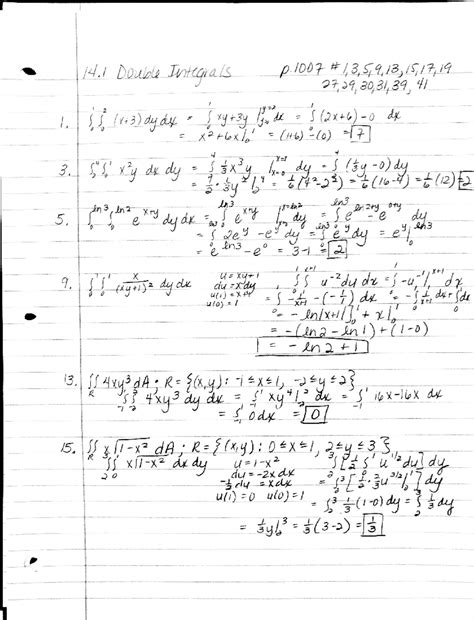 14.1 Double Integrals p.1007 # 1,3,5,9,13,15,17,19
27,29,30,31,39,41
1. ∫₀¹∫₀² (x+3) dy dx = ∫₀¹ xy+3y |_{y=0}^{y=2} dx = ∫₀¹ (2x+6)-0 dx
= x²+6x|₀¹ = (1+6)-(0) = 7
3. x²y dx dy = ⅓x³y |_{x=0}^{x=1} dy = (⅓y-0)dy
= ⅓·½y² |₂⁴ = ⅙(4²-2²) = ⅙(16-4) = ⅙(12) = 2
5. ∫₀^{ln3}∫₀^{ln2} e^{x+y} dy dx = ∫₀^{ln3} e^{x+y} dy = ∫ e^{ln2+y} - e^{0+y} dy
= ∫ 2e^y - e^y dy = ∫₀^{ln3} e^y dy = e^y|₀^{ln3}
= e^{ln3} - e⁰ = 3-1 = 2
9. ∫₀¹∫₀¹ x/(xy+1)² dy dx u = xy+1 ∫₀¹∫₁^{x+1} u⁻² du dx = ∫₀¹ -u⁻¹|₁^{x+1} dx
du = x dy
u(1) = x+1 = ∫₀¹ -1/(x+1) - (-1/1) dx = -∫₀¹ 1/(x+1) dx + ∫₀¹ dx
u(0) = 1 = -ln|x+1| |₀¹ + x|₀¹
= -(ln2 - ln1) + (1-0)
= -ln2+1
13. ∬_R 4xy³ dA ; R = {(x,y): -1≤x≤1, -2≤y≤2}
∫₋₁¹∫₋₂² 4xy³ dy dx = ∫₋₁¹ xy⁴|₋₂² dx = ∫₋₁¹ 16x-16x dx
= ∫₋₁¹ 0 dx = 0
15. ∬_R x√(1-x²) dA ; R = {(x,y): 0≤x≤1, 2≤y≤3}
∫₂³∫₀¹ x√(1-x²) dx dy u = 1-x² ∫₂³[½∫₀¹ u^{1/2} du] dy
du = -2x dx
-½du = x dx = ∫₂³[½·⅔u^{3/2}|₀¹] dy
u(1) = 0 u(0) = 1 = ∫₂³ ⅓(1-0) dy = ∫₂³ ⅓ dy
= ⅓y|₂³ = ⅓(3-2) = ⅓